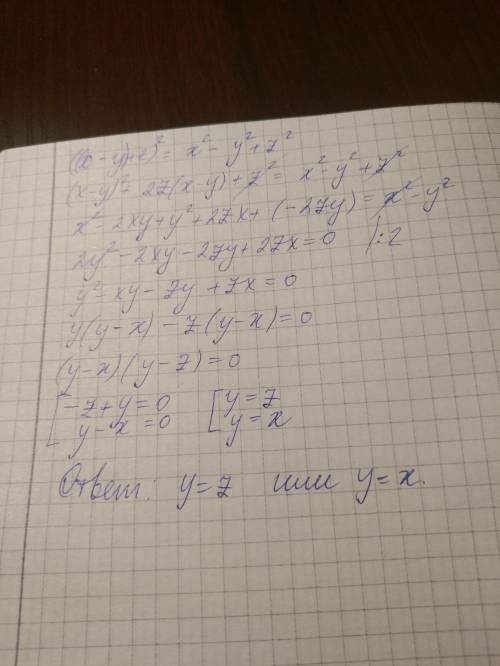 ((x-y)+z)² = x² - y² + z²
(x-y)² - 2z(x-y) + z² = x² - y² + z²
x² - 2xy + y² + 2zx + (-2zy) = x² - y²
2y² - 2xy - 2zy + 2zx = 0 |:2
y² - xy - zy + zx = 0
y(y-x) - z(y-x) = 0
(y-x)(y-z) = 0
[-z+y=0 [y=z
y-x=0 y=x
Ответ: y=z или y=x.